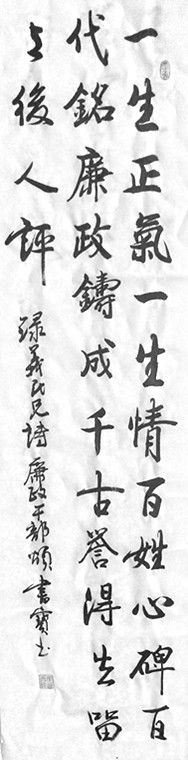 一生正氣一生情百姓心碑百
代銘廉政鑄成千古譽得失留
与後人評
録義民兄詩廉政干部頌書寶书